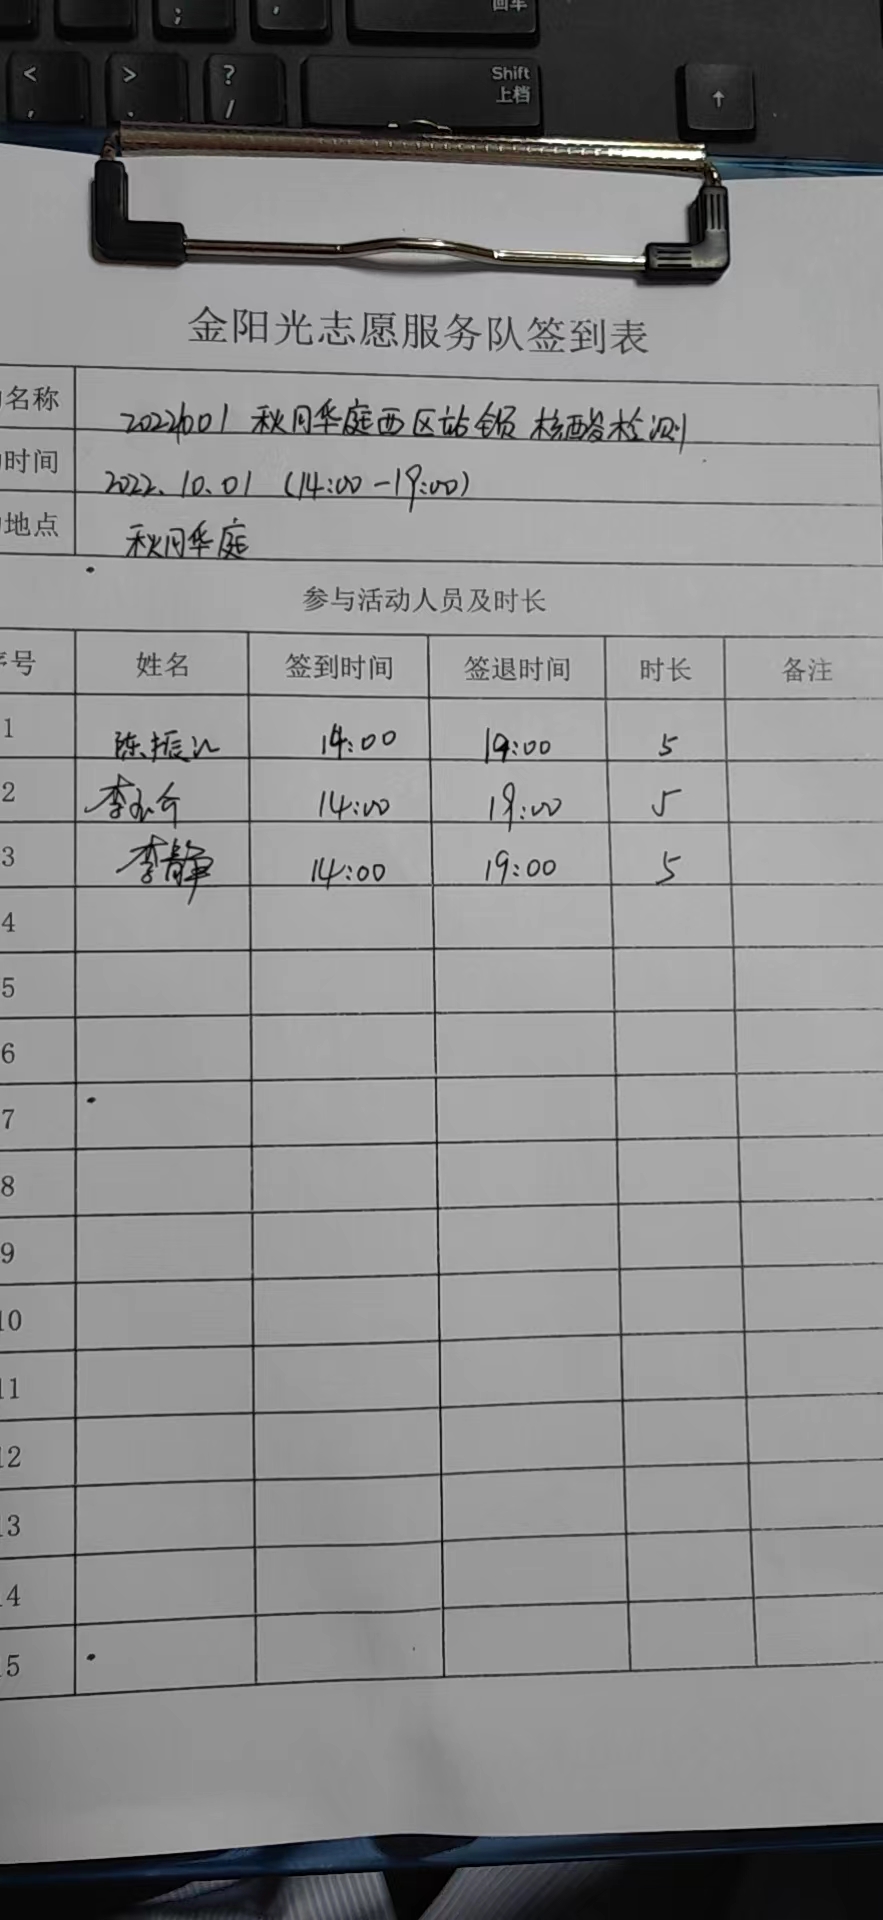 回车
; ,
< > ? Shift
, . / 上档 ↑
金阳光志愿服务队签到表
名称 20221001 秋月华庭西区站 核酸检测
时间 2022.10.01 (14:00-19:00)
地点 秋月华庭
参与活动人员及时长
序号 姓名 签到时间 签退时间 时长 备注
1 陈振 14:00 19:00 5
2 李 14:00 19:00 5
3 李静 14:00 19:00 5
4
5
6
7
8
9
10
11
12
13
14
15